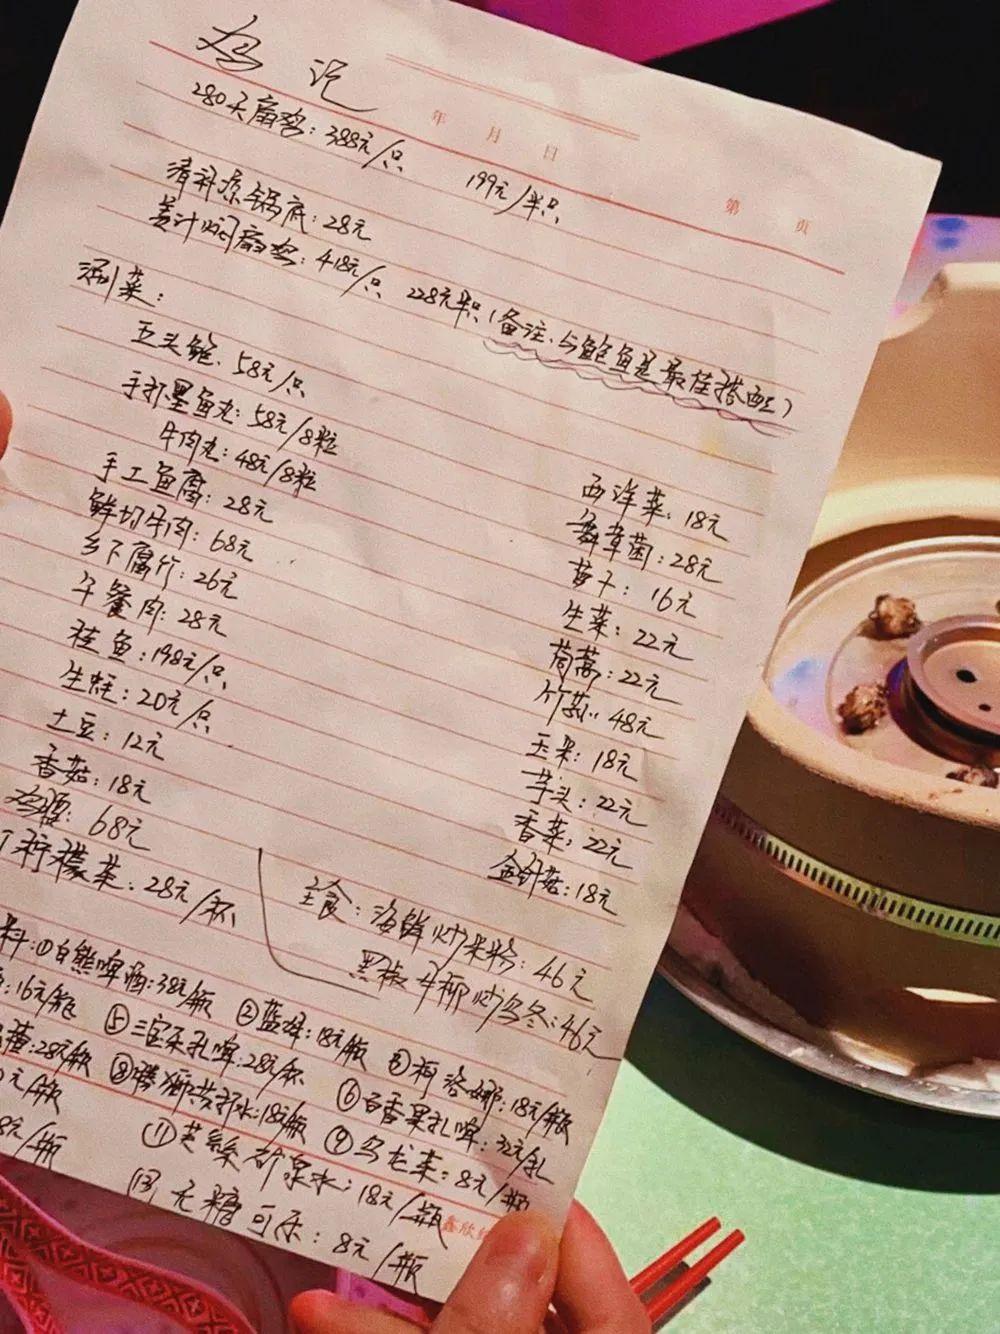 鸡记
年 月 日
第 页
280天扇鸡:388元/只 199元/半只
清补凉锅底:28元
姜汁焖扇鸡:418元/只 228元半只(备注、与鲍鱼是最佳搭配)
涮菜:
五头鲍、58元/只
手打墨鱼丸:58元/8粒
牛肉丸:48元/8粒
手工鱼腐:28元
鲜切牛肉:68元
乡下腐竹:26元
午餐肉:28元
桂鱼:198元/只
生蚝:20元/只
土豆:12元
香菇:18元
68元
柠檬茶:28元/杯
西洋菜:18元
28元
萝卜:16元
生菜:22元
茼蒿:22元
竹荪:48元
玉米:18元
芋头:22元
香菜:22元
金针菇:18元
主食:海鲜炒米粉:46元
黑椒牛柳炒乌冬:46元
料:①白熊啤酒:38元/瓶 ②蓝妹:18元/瓶 ③柯洛娜:18元/瓶
:16元/瓶 ⑤三宝乐扎啤:28元/杯 ⑥百香果扎啤:32元/扎
:28元/瓶 ⑧腾狮苏打水:18元/瓶 ⑨乌龙茶:8元/瓶
元/瓶 ⑪芙丝矿泉水:18元/瓶
8元/瓶 ⑬无糖可乐:8元/瓶
鑫欣